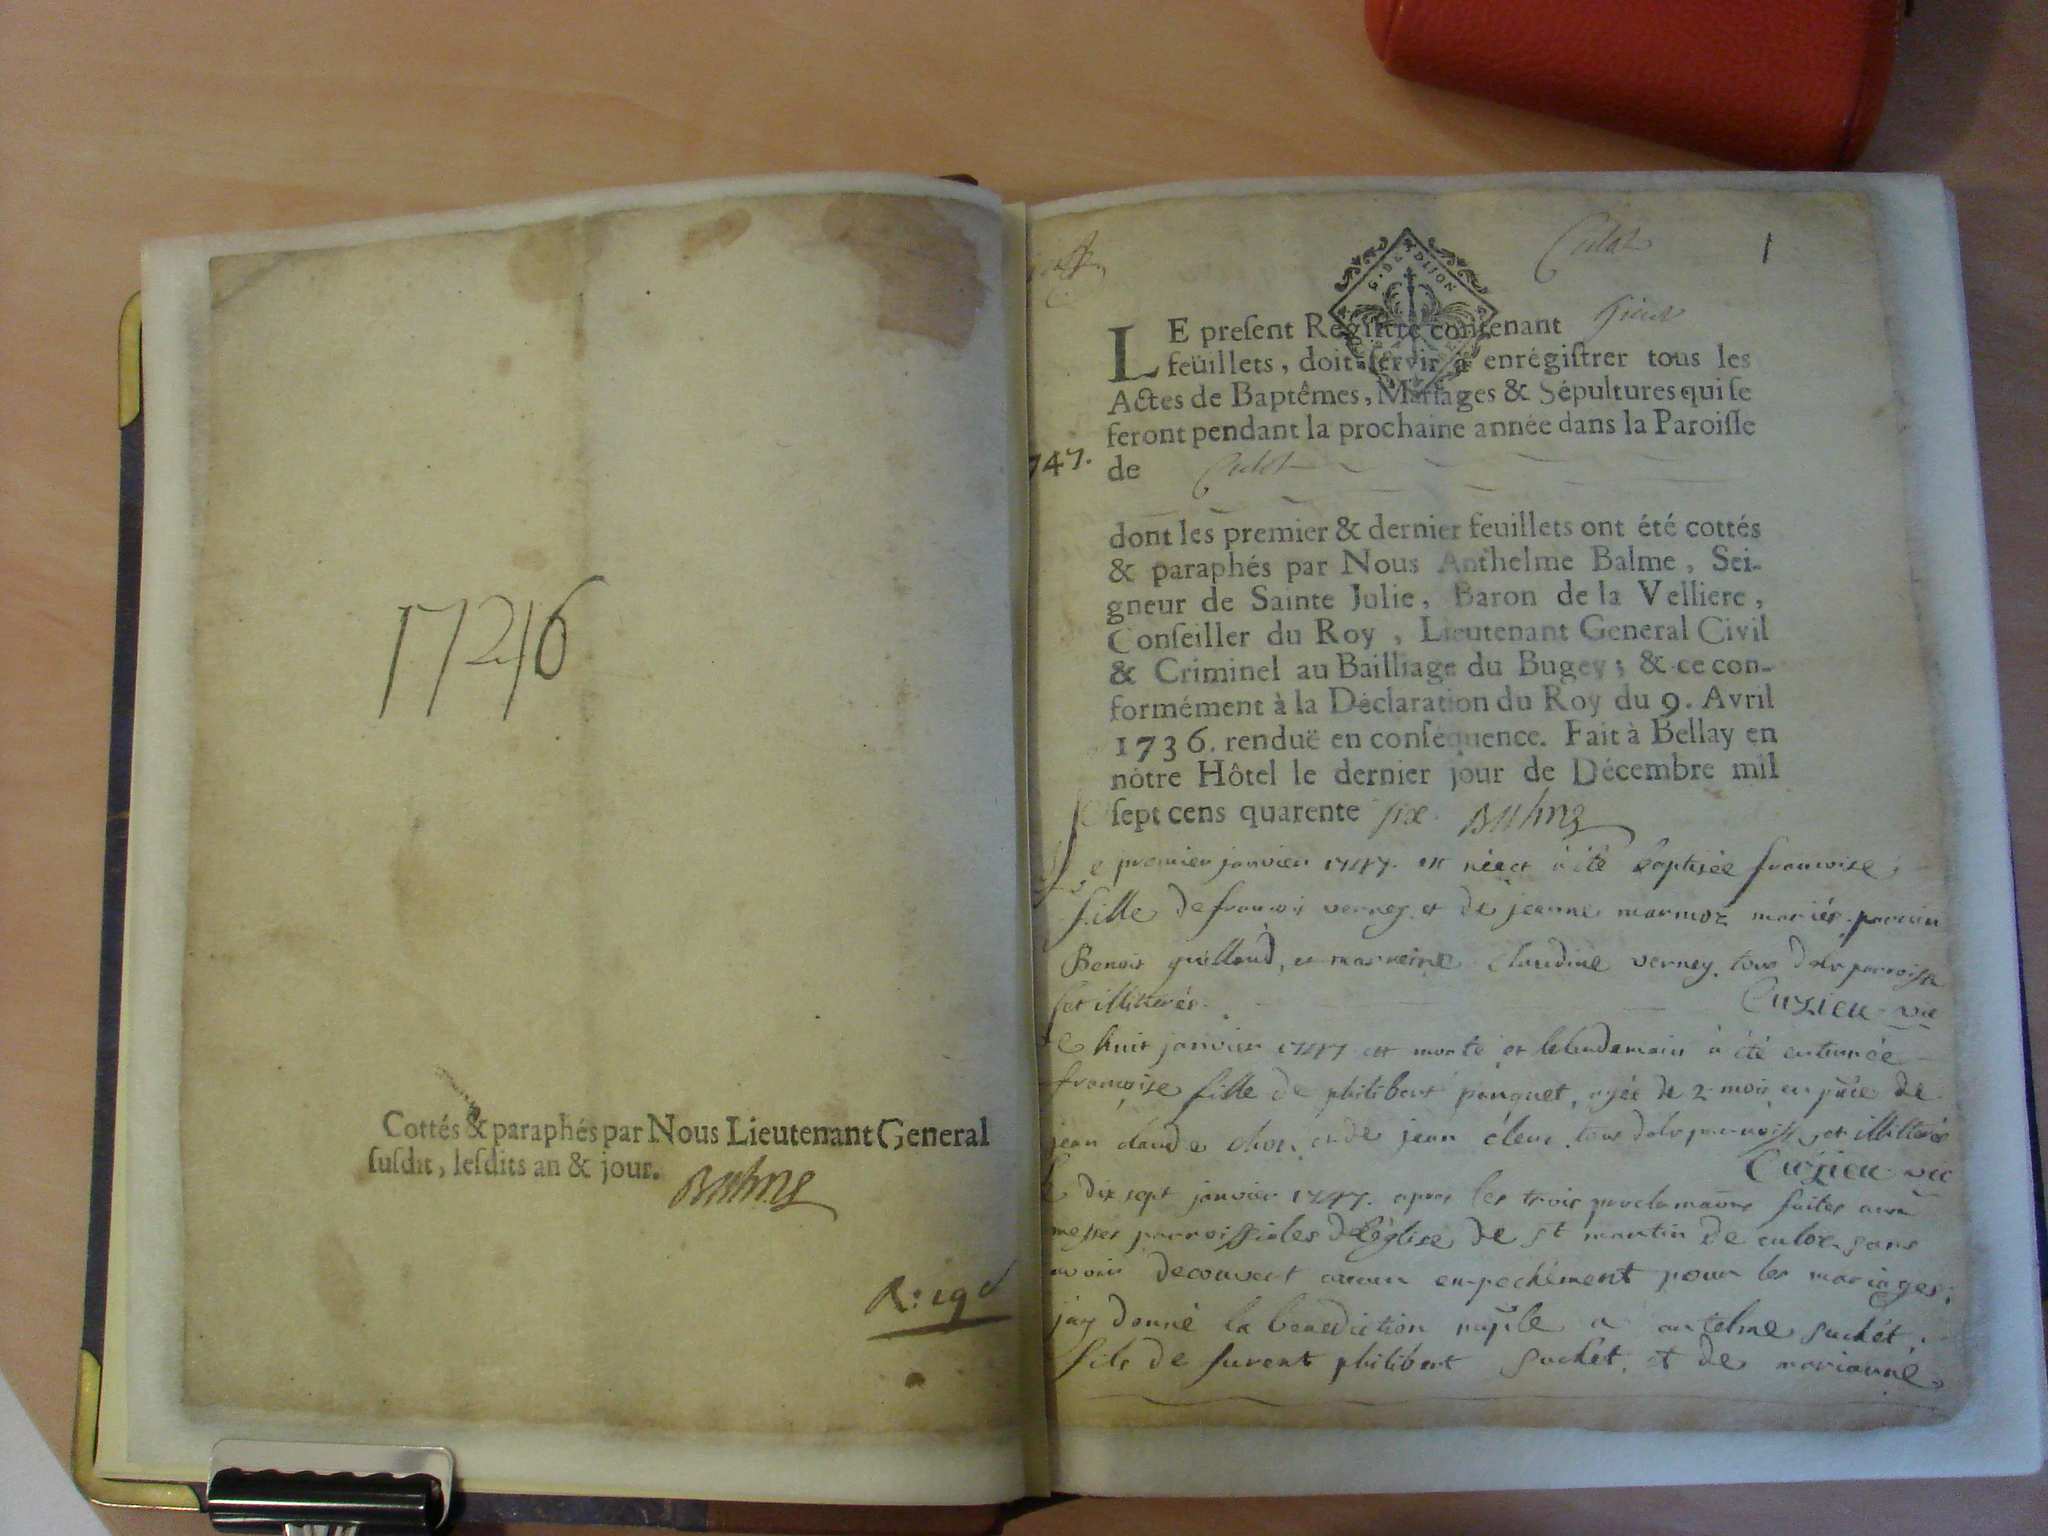 1746
Cottés & paraphés par Nous Lieutenant General
susdit, lesdits an & jour. Balme
R: 19 d
1
G. DE DIJON
LE present Registre contenant
feüillets, doit servir à enrégistrer tous les
Actes de Baptêmes, Mariages & Sépultures qui se
feront pendant la prochaine année dans la Paroisse
747.
de Culoz
dont les premier & dernier feuillets ont été cottés
& paraphés par Nous Anthelme Balme, Sei-
gneur de Sainte Julie, Baron de la Velliere,
Conseiller du Roy, Lieutenant General Civil
& Criminel au Bailliage du Bugey; & ce con-
formément à la Déclaration du Roy du 9. Avril
1736. renduë en conséquence. Fait à Bellay en
nôtre Hôtel le dernier jour de Décembre mil
sept cens quarente six Balme
Le premier janvier 1747. est née et a été baptisée francoise,
fille de francois verney et de jeanne marmoz mariés. parrin
Benoit guillaud, et marreine claudine verney. tous de la parroisse
et illitterés. Cuzieu vic
le huit janvier 1747 est morte et le lendemain a été enterrée
françoise fille de philibert panquet, agée de 2 mois, en présce de
jean claude et de jean tous de la parroisse et illitterés
Cuzieu vic
le dix sept janvier 1747. apres les trois proclamaons faites aux
messes parroissiales de l'église de st martin de culoz sans
avoir decouvert aucun empechément pour les mariages,
jay donné la benediction nuple a antelme suchét,
fils de furent philibert suchet, et de marianne